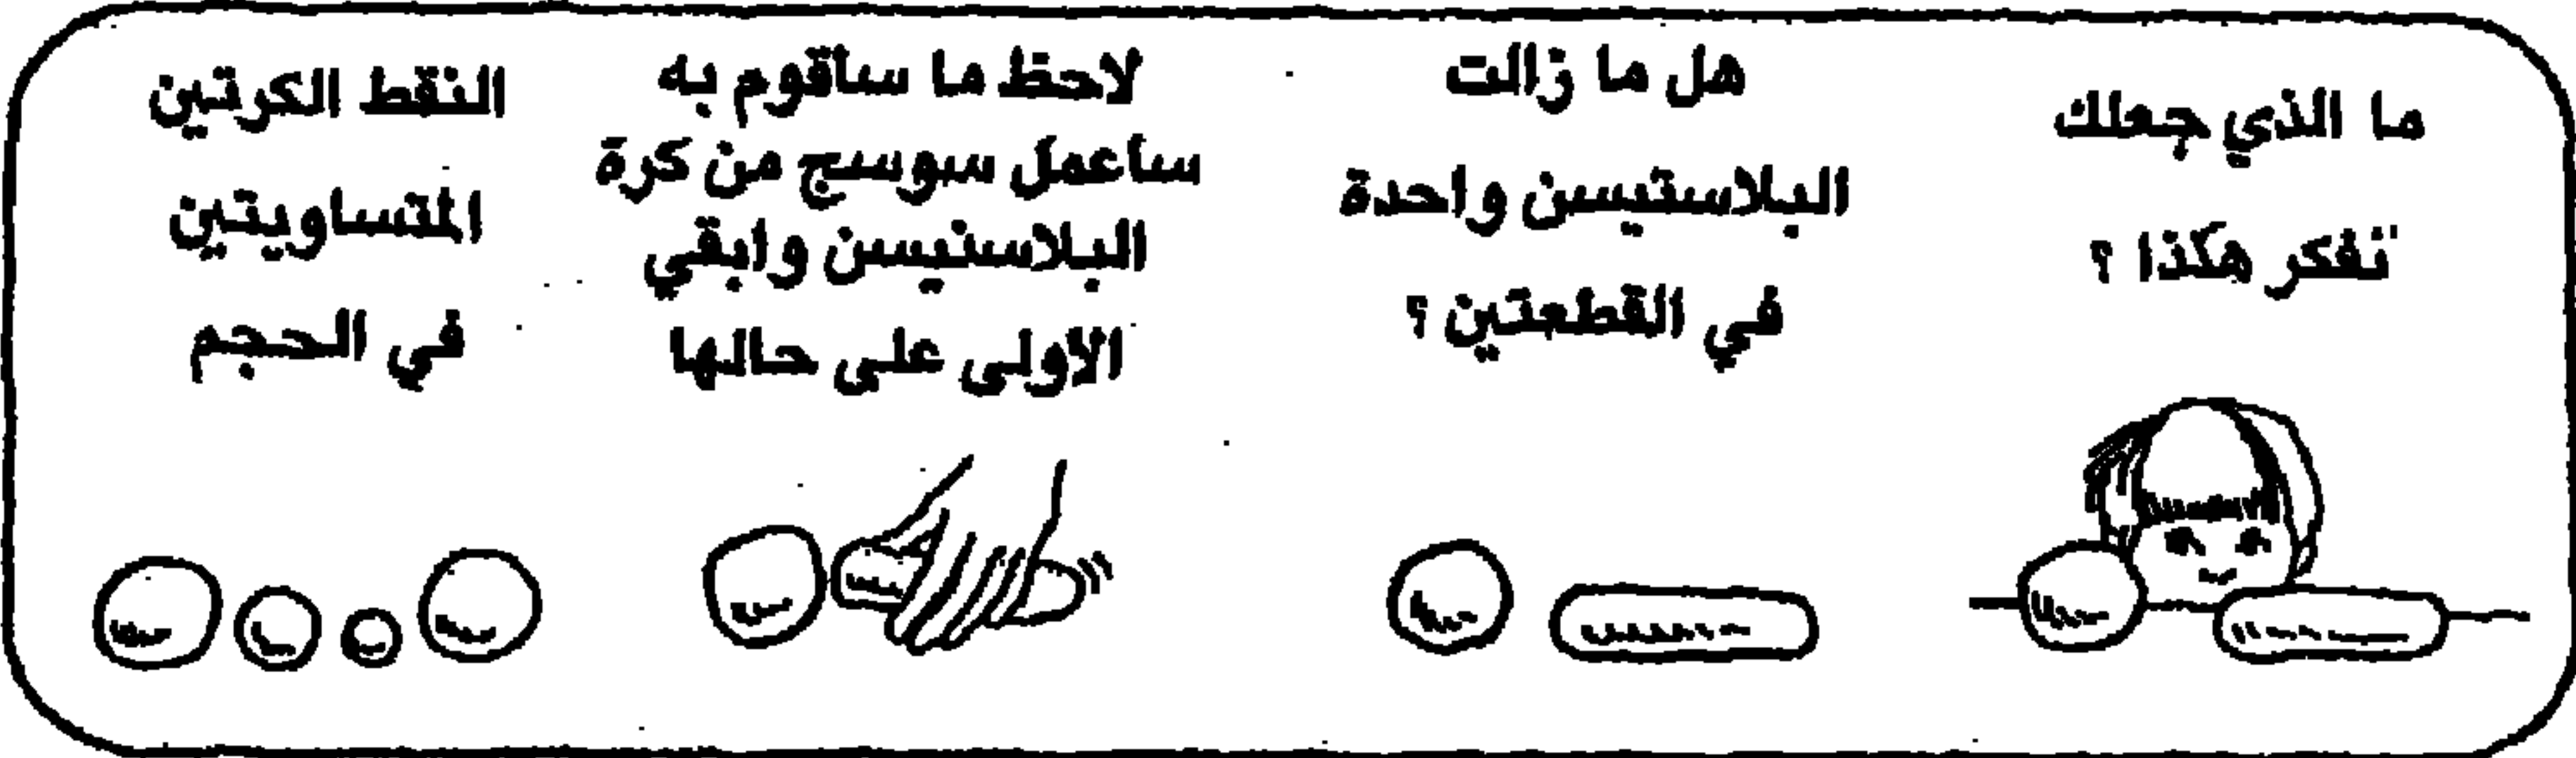 النقط الكرتين
المتساويتين
في الحجم
لاحظ ما سأقوم به
ساعمل سوسج من كرة
البلاستيسن وابقي
الاولى على حالها
هل ما زالت
البلاستيسن واحدة
في القطعتين ؟
ما الذي جعلك
نفكر هكذا ؟